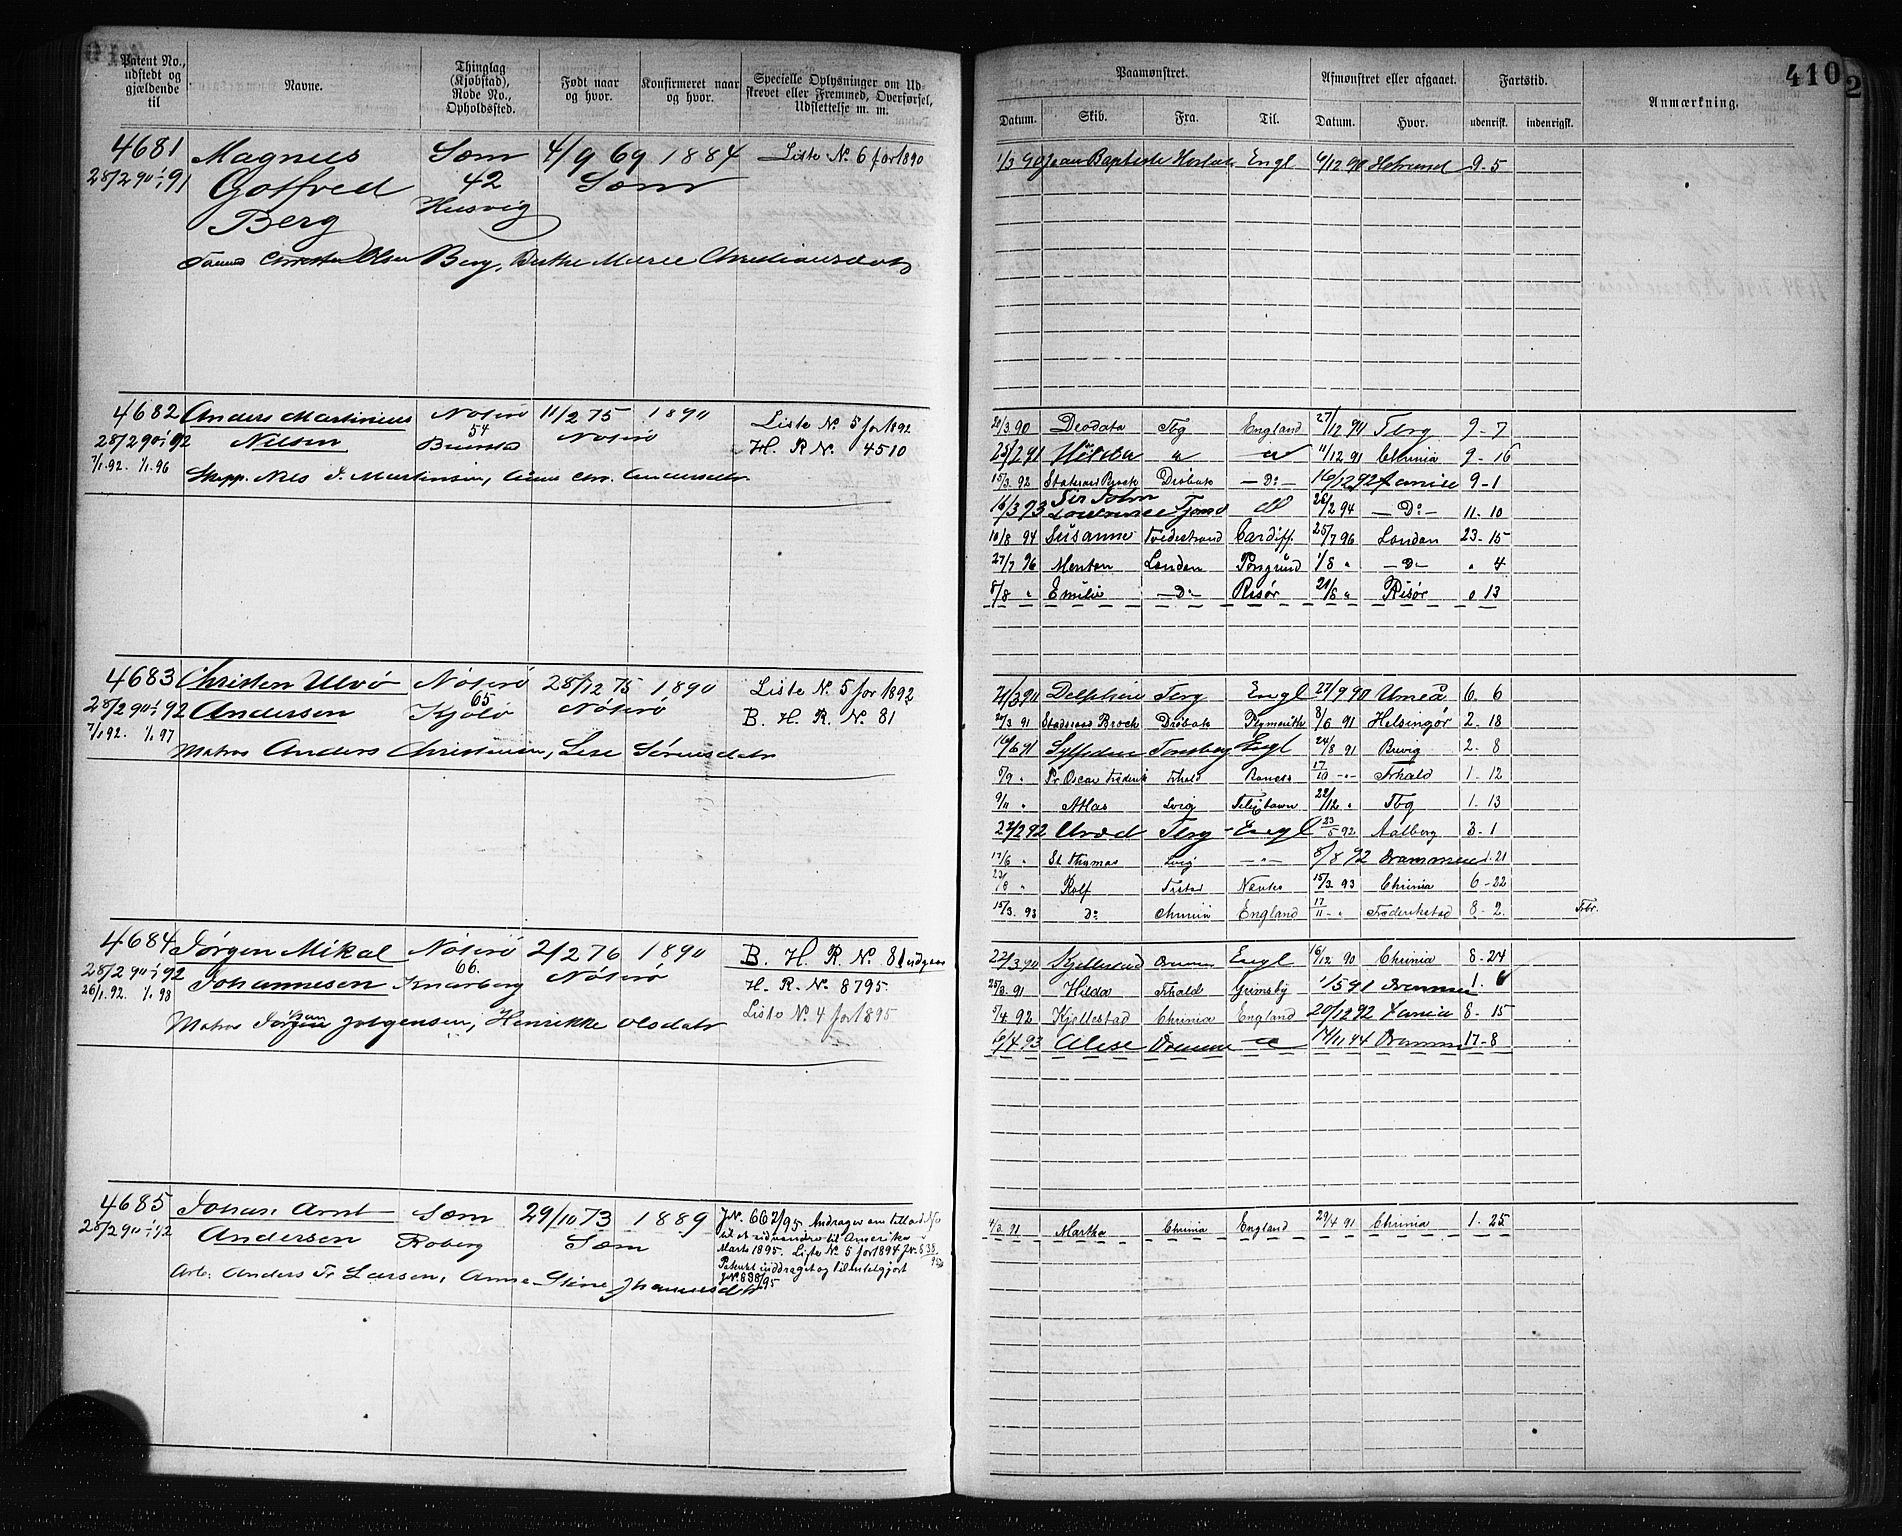 Patent No., udstedt og gjældende til
Navne.
Thinglag (Kjøbstad), Rode No., Opholdssted.
Født naar og hvor.
Konfirmeret naar og hvor.
Specielle Oplysninger om Udskrevet eller Fremmed, Overførsel, Udslettelse m. m.
4681 Magnus Sæm 4/9 69 1884 Liste No. 6 for 1890
28/2 90 - 1/1 91 Gotfred 42 Sæm
Berg Husvig
Berg,
4682 Anders Martinius Nøterø 11/2 75 1890 Liste No. 5 for 1892
28/2 90 1/1 92 Nilsen 54 Nøterø H. R No. 4510
7/1.92. 1/1.96
Skipp. Nils J. Martinsen, Anne Andersdtr
4683 Christen Ulvø Nøterø 28/12 75 1890 Liste No. 5 for 1892
28/2 90 1/1 92 Andersen 65 Kjøle Nøterø B. H. R. No. 81
7/1 92. 1/1 97
Matros Anders Christensen, Lise Sørensdatr
4684 Jørgen Mikal Nøterø 2/2 76 1890 B. H. R. No. 81 udgaar
28/2 90 1/1 92 Johannesen 66. Knarberg Nøterø H. R. No. 8795.
26/1.92. 1/1 98 Liste No. 4 for 1895
Matros Jørgensen, Henrikke Olsdatr
4685 Johan Arnt Sæm 29/10 73 1889 J.No. 662/95 Andrager om tilladelse
28/2 90 - 1/1 92 Andersen Roberg Sæm til at udvandre til Amerika
Marts 1895. Liste No. 5 for 1894 J.No. 638/95
Patent inddraget og tilintetgjort
J.No. 638/95
Arb. Anders Fr Larsen, Anne Stine Johannesdatr
410
2
Paamønstret.
Afmønstret eller afgaaet.
Fartstid.
Anmærkning.
Datum. Skib. Fra. Til. Datum. Hvor. udenrigsk. indenrigsk.
1/3 90 Jean Baptiste Engl 9/12 90 9-5
20/3.90 Deodata Tbg England 27/12 90 Tbrg 9-7
25/2 91 Hilda " " 11/12 91 Chrinia 9-16
15/3. 92 Statsraad Brock Drøbak - Do - 16/12 92 9-1
16/3 93 Sir John Lawrence Tjømø do 26/2 94 - Do - 11. 10
10/8 94 Susanne Tvedestrand Cardiff 25/7 96 London 23-15
27/7 96 Menton London Porsgrund 1/8 " - Do - " 4
8/8 " Emilie - Do - Risør 21/8 " Risør 0 13
21/3 90 Delphin Tbrg Engl 27/9 90 Umeå 6 6
20/3 91 Stadsraad Brock Drøbak Plymouth 8/6 91 Helsingør 2-18
16/6 91 Tønsberg Engl 24/8 91 Brevig 2-8
5/9 " Pr. Oscar Frederik Frhald 17/10 - " - Frhald 1-12
9/11 " Atlas Lvig 22/12 " Tbg 1-13
22/2 92 Tbrg Engl 23/5 92 Aalborg 3-1
17/6 " St. Thomas Lvig - " - 8/8 92 Drammen 1.21
23/8 " Rolf Frstad Nantes 15/3 93 Chrinia 6-22
15/3. 93 Do Chrinia England 17/11 - " Frederikstad 8-2. Fbr.
22/3 90 Kjellestad Engl 16/12 90 Chrinia 8-24
25/3. 91 Hilda Frhald Grimsby 1/5 91 Drammen 1. 6
5/4 92 Kjellestad Chrinia England 20/12 92 8-15
6/4 93 Alise Drammen " 14/11 94 Drammen 17-8
4/3. 91 Martha Chrinia England 29/4 91 Chrinia 1-25